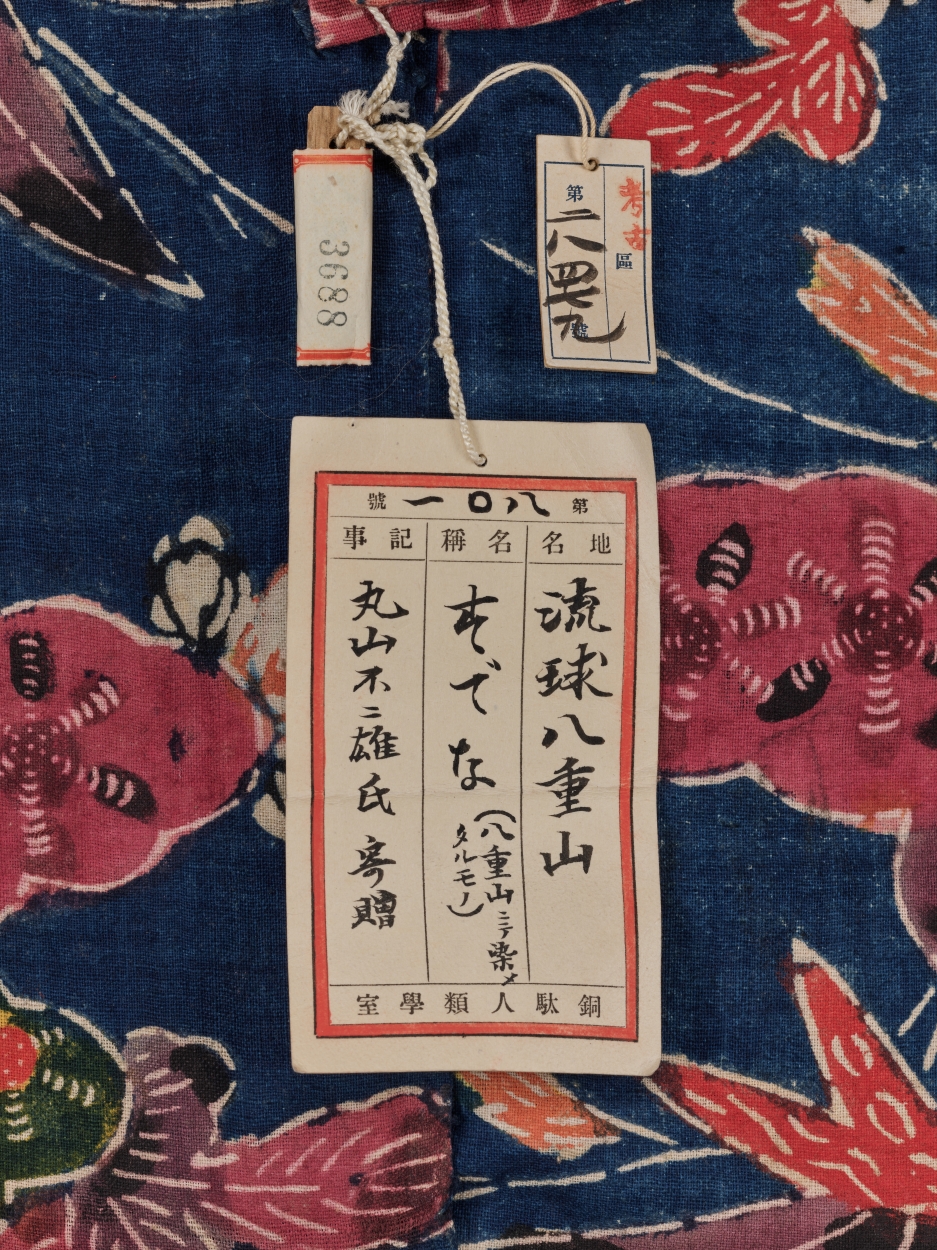 3688
考古區
第二八四七九號
第八〇一號
地名
流球八重山
名稱
すでな
(八重山ニテ染メ
タルモノ)
記事
丸山不二雄氏寄贈
銅駄人類學室